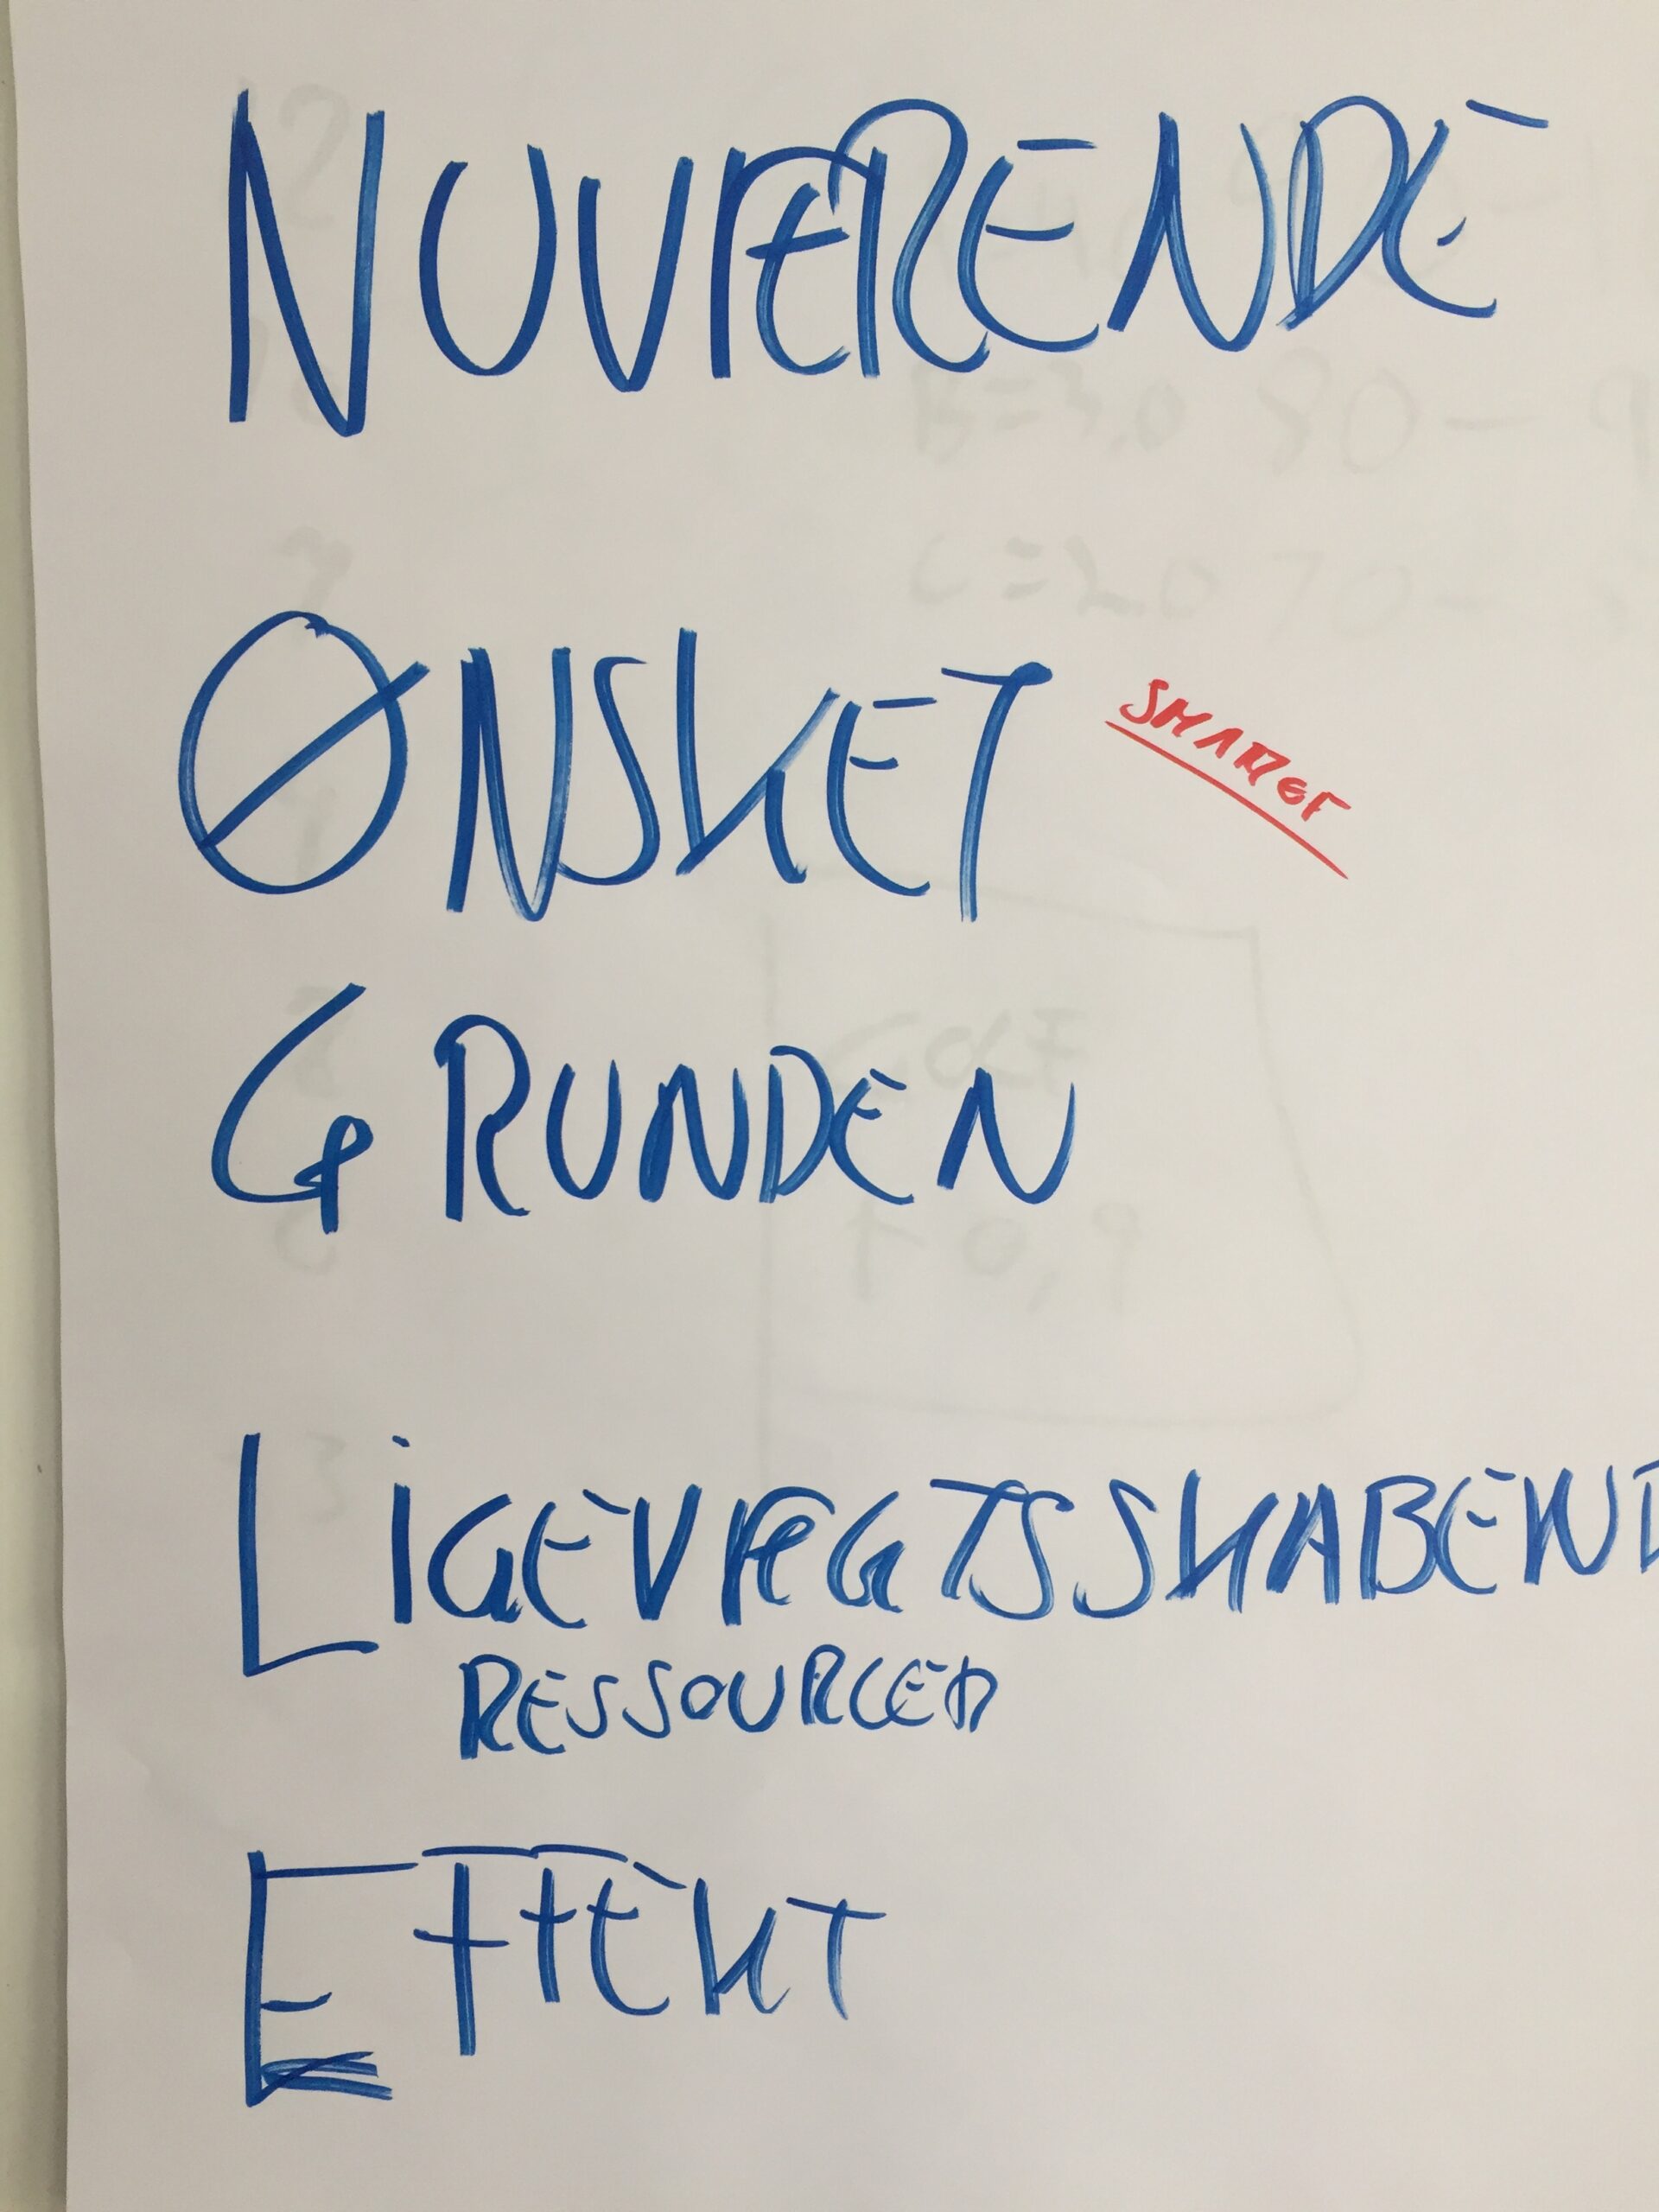 NUVÆRENDE
ØNSKET SMARGT
GRUNDEN
LIGEVÆGTSSKABEND
RESSOURCER
EFFEKT